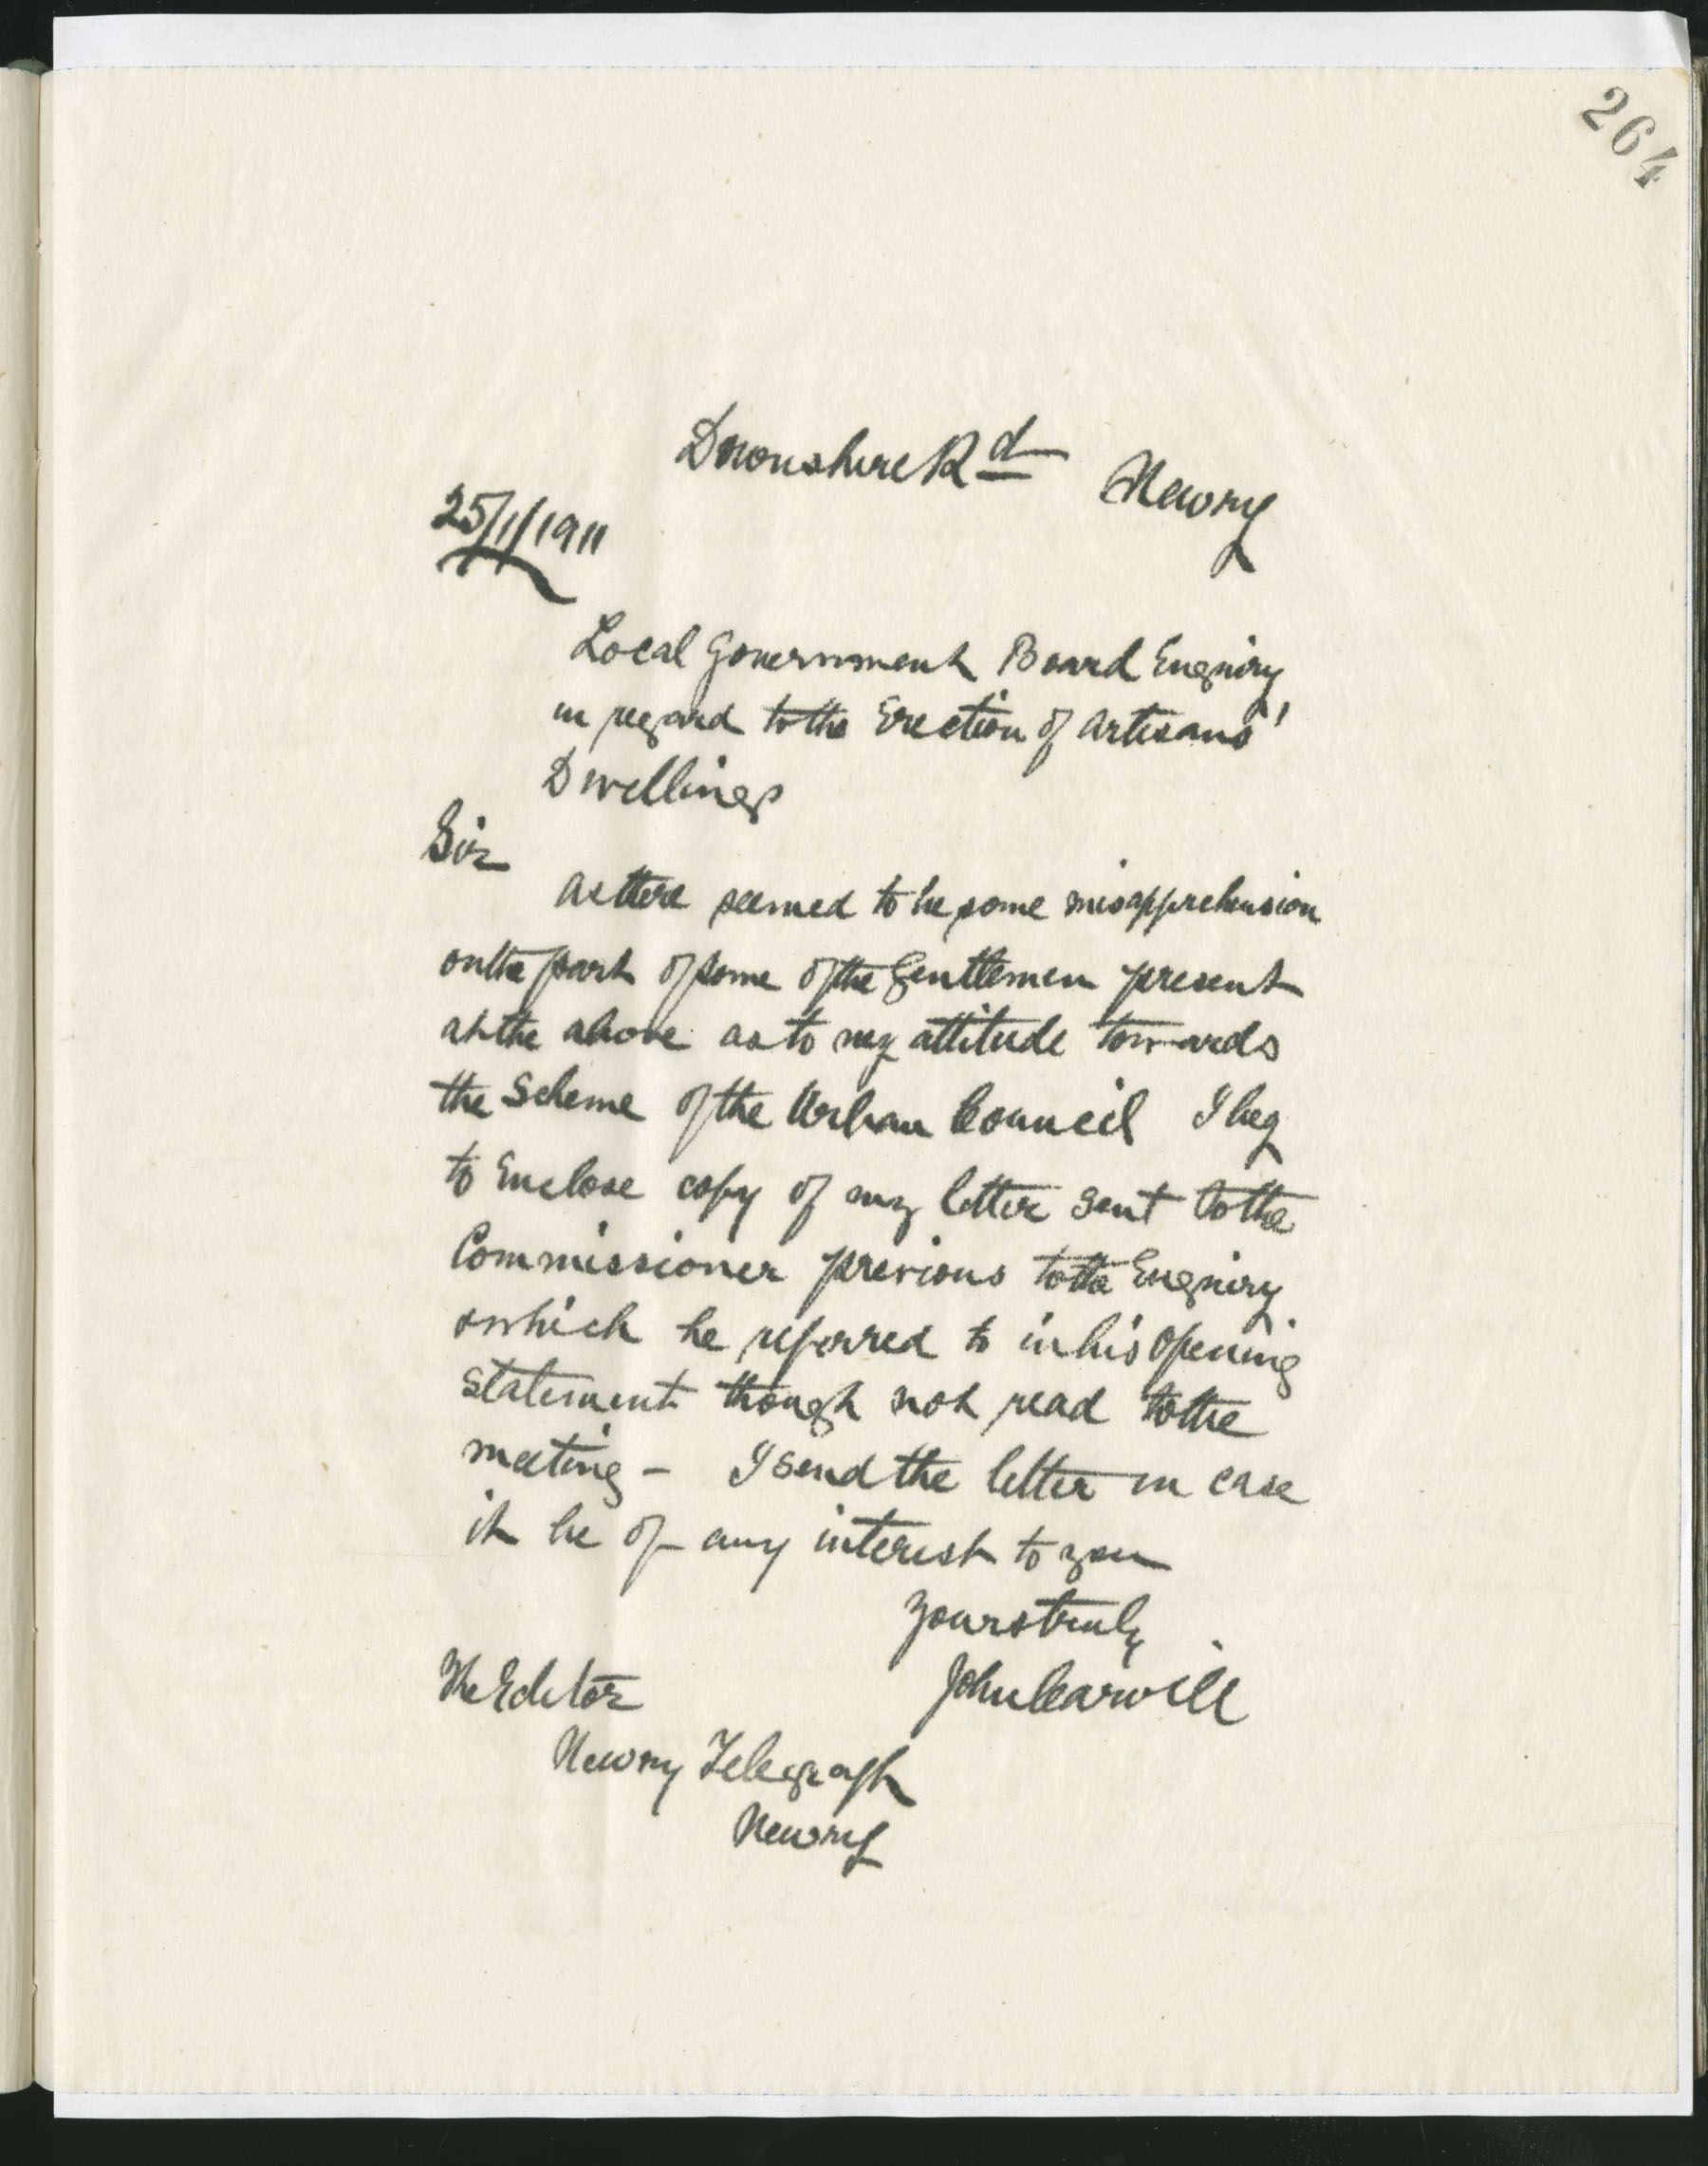 264
Devonshire Rd Newry
25/1/1911
Local Government Board Enquiry
in regard to the Erection of Artisans'
Dwellings
Sir
As there seemed to be some misapprehension
on the part of some of the Gentlemen present
at the above as to my attitude towards
the Scheme of the Urban Council I beg
to Enclose copy of my letter sent to the
Commissioner previous to the Enquiry
which he referred to in his opening
statement though not read to the
meeting - I send the letter in case
it be of any interest to you
Yours truly
John Carvill
The Editor
Newry Telegraph
Newry